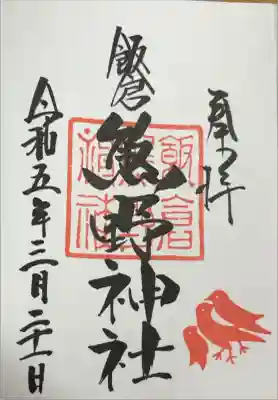 奉拝
飯倉
熊野神社
飯倉
令和五年三月二十一日